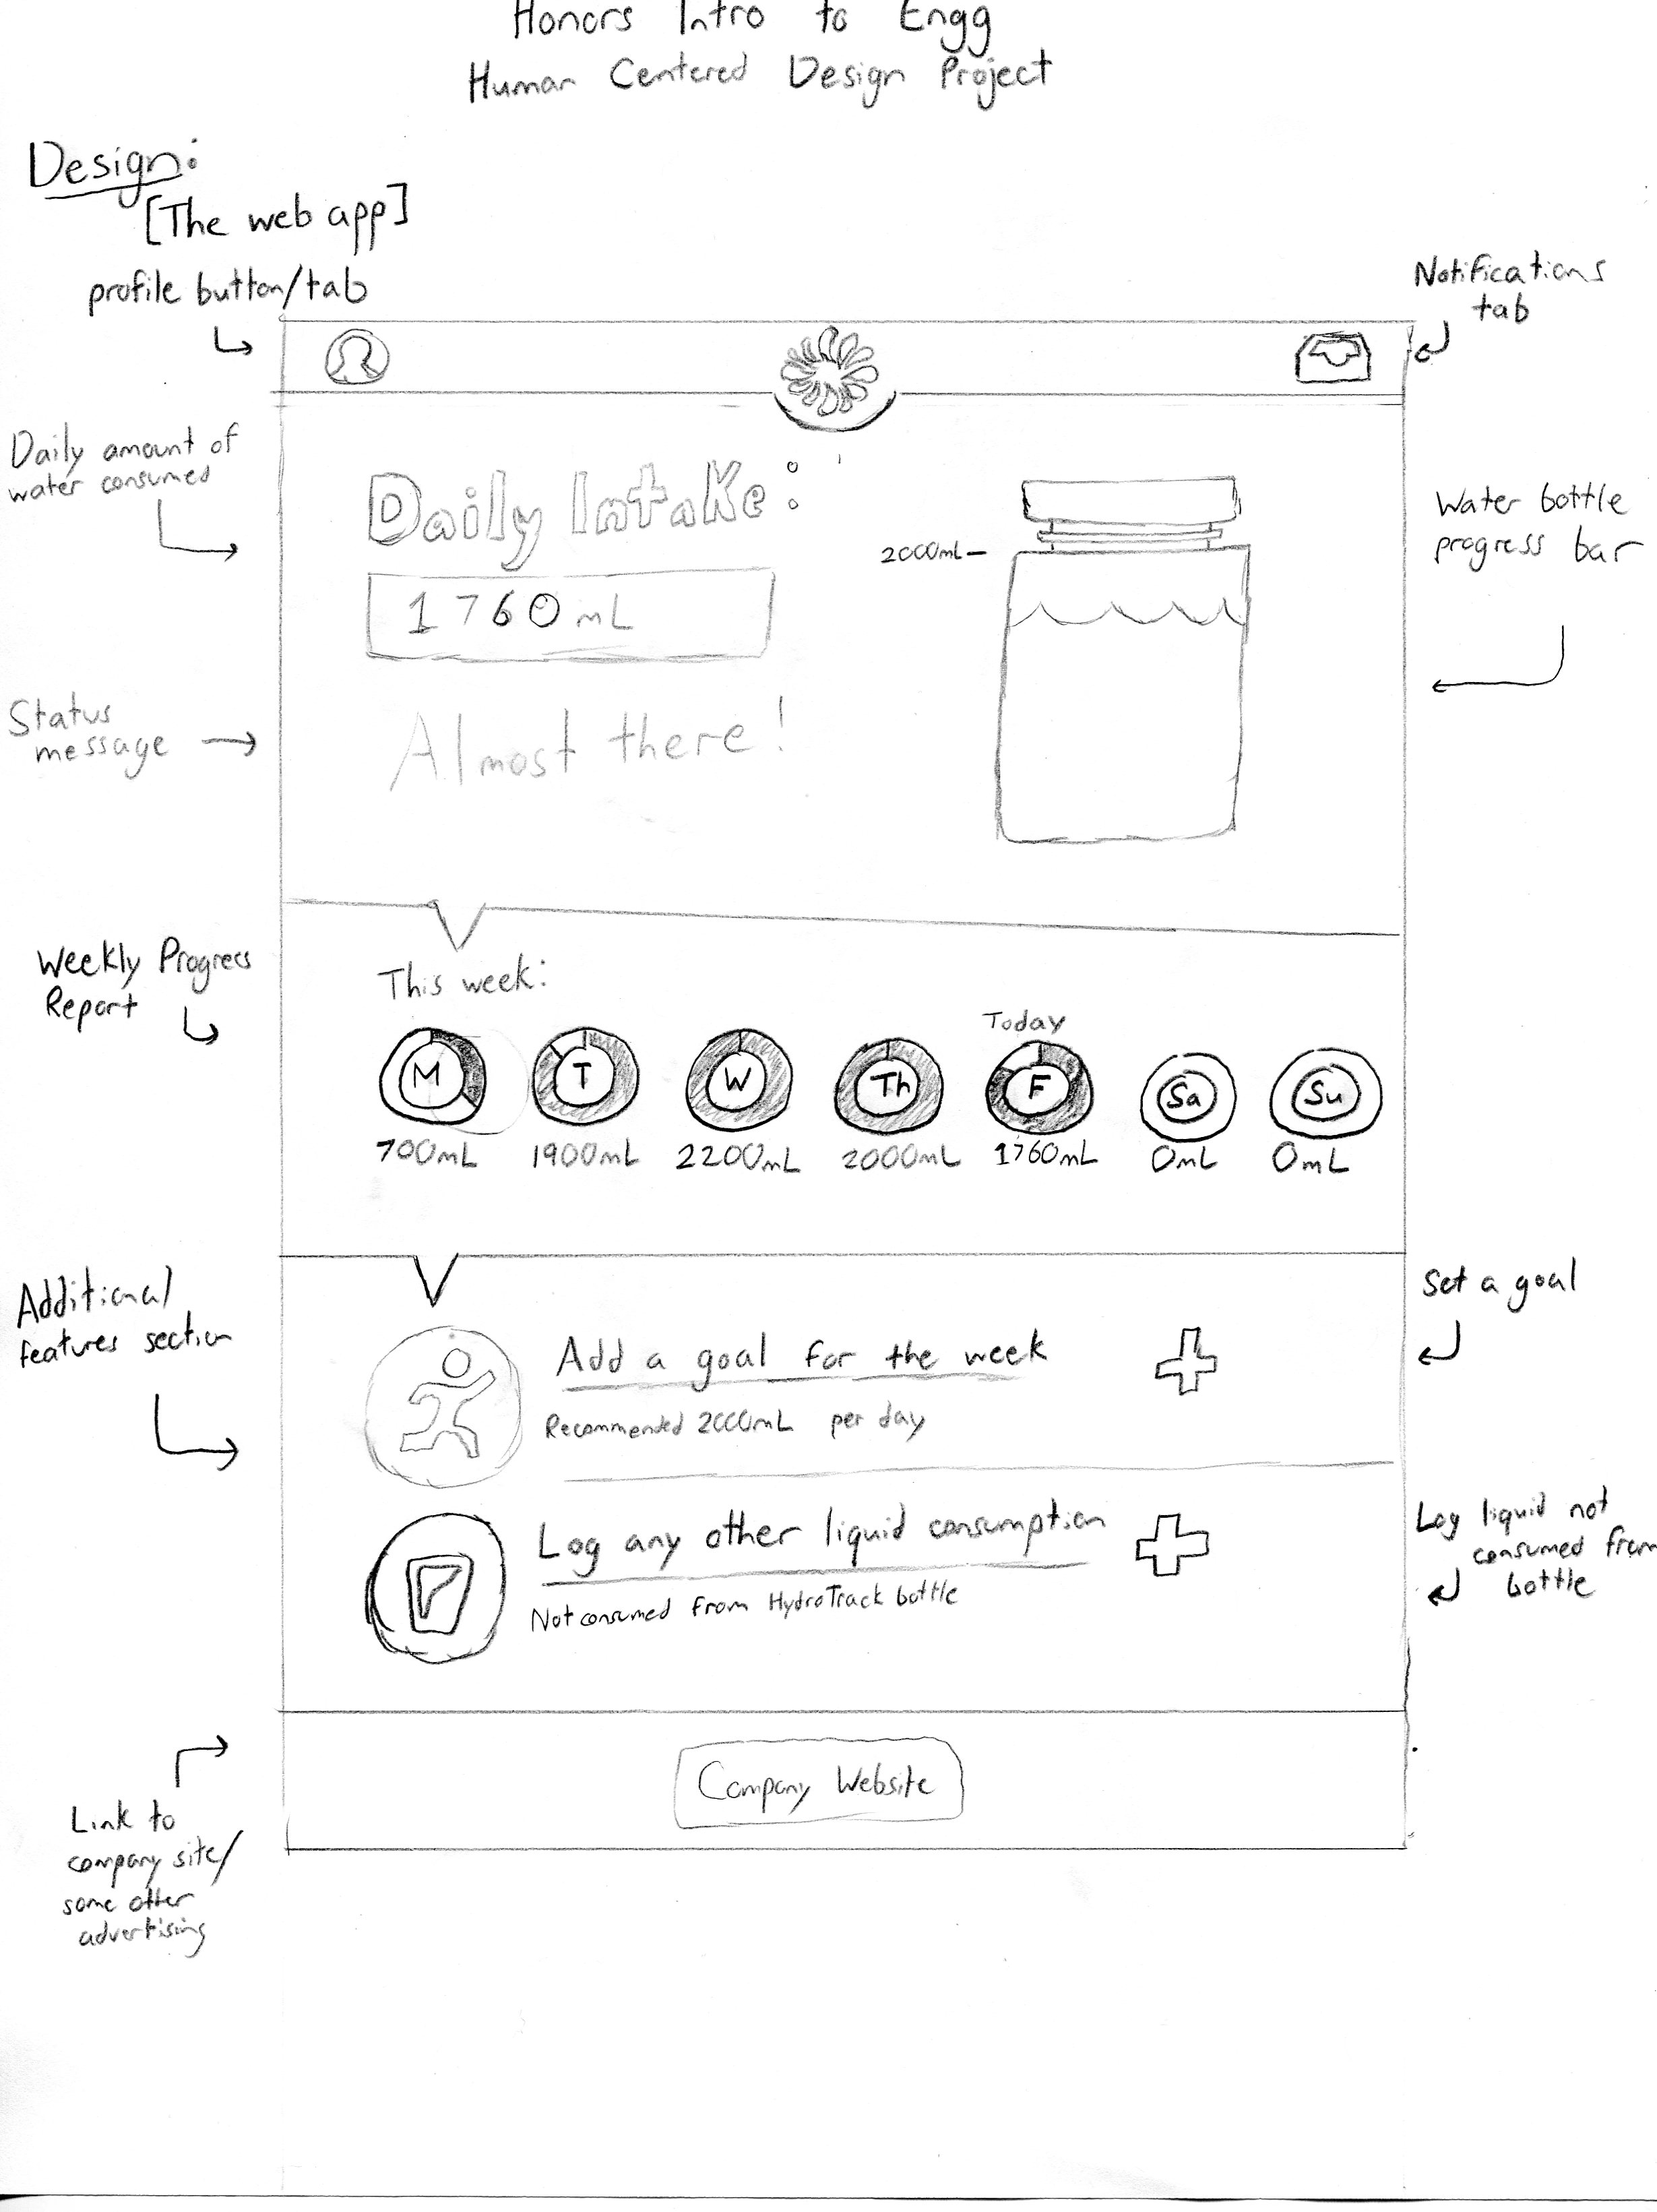 Honors Intro to Engg
Human Centered Design Project
Design:
[The web app]
profile button/tab
Notifications
tab
Daily amount of
water consumed
Daily Intake:
1760mL
2000mL
Water bottle
progress bar
Status
message
Almost there!
Weekly Progress
Report
This week:
Today
M T W Th F Sa Su
700mL 1900mL 2200mL 2000mL 1760mL 0mL 0mL
Additional
features section
Set a goal
Add a goal for the week
Recommended 2000mL per day
Log any other liquid consumption
Not consumed from HydroTrack bottle
Log liquid not
consumed from
bottle
Company Website
Link to
company site/
some other
advertising